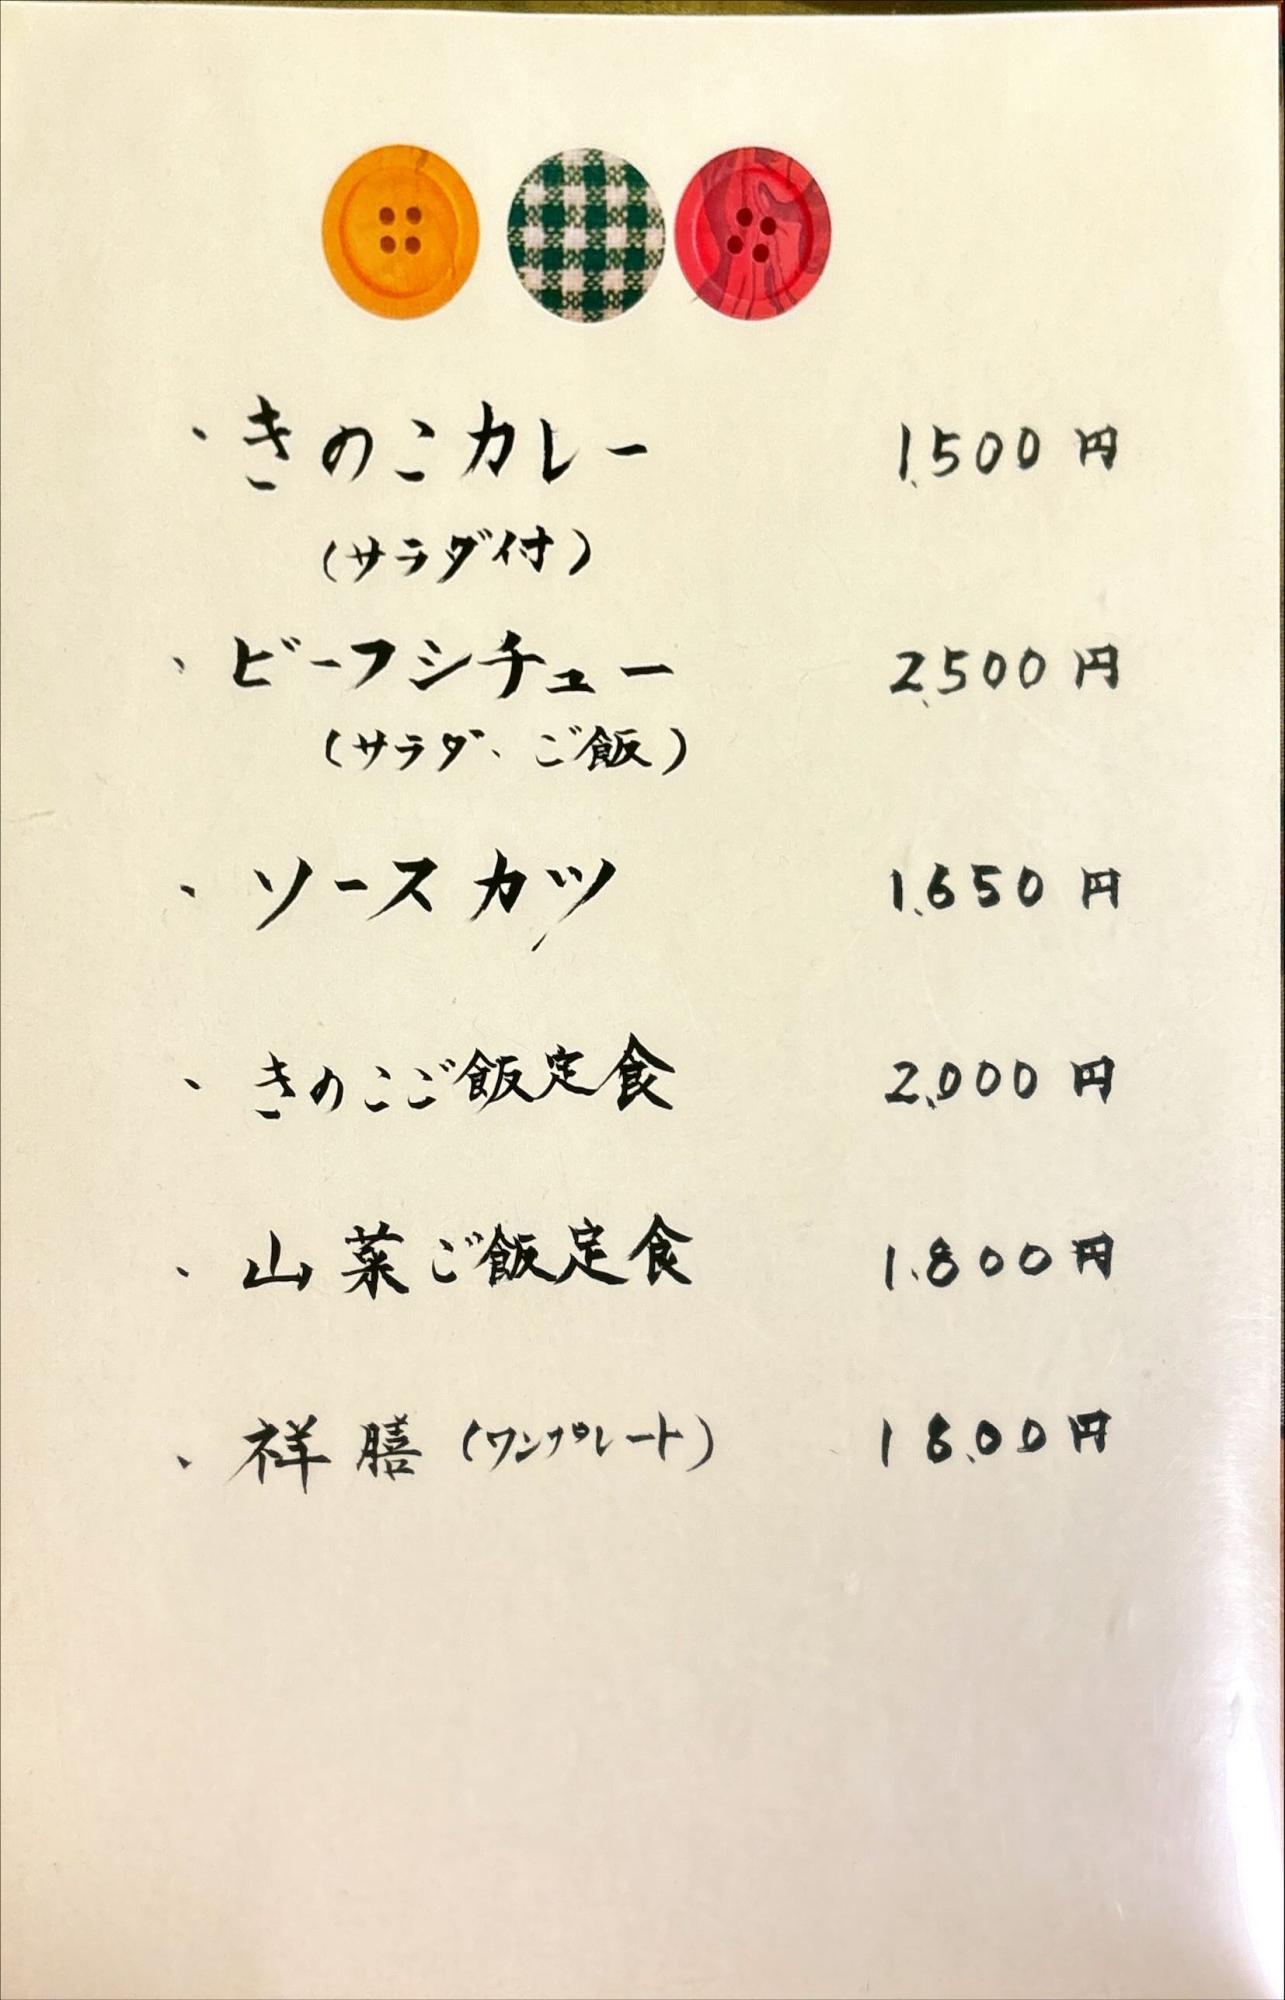 ・きのこカレー 1,500円
(サラダ付)
・ビーフシチュー 2,500円
(サラダ、ご飯)
・ソースカツ 1,650円
・きのこご飯定食 2,000円
・山菜ご飯定食 1,800円
・祥膳(ワンプレート) 1800円